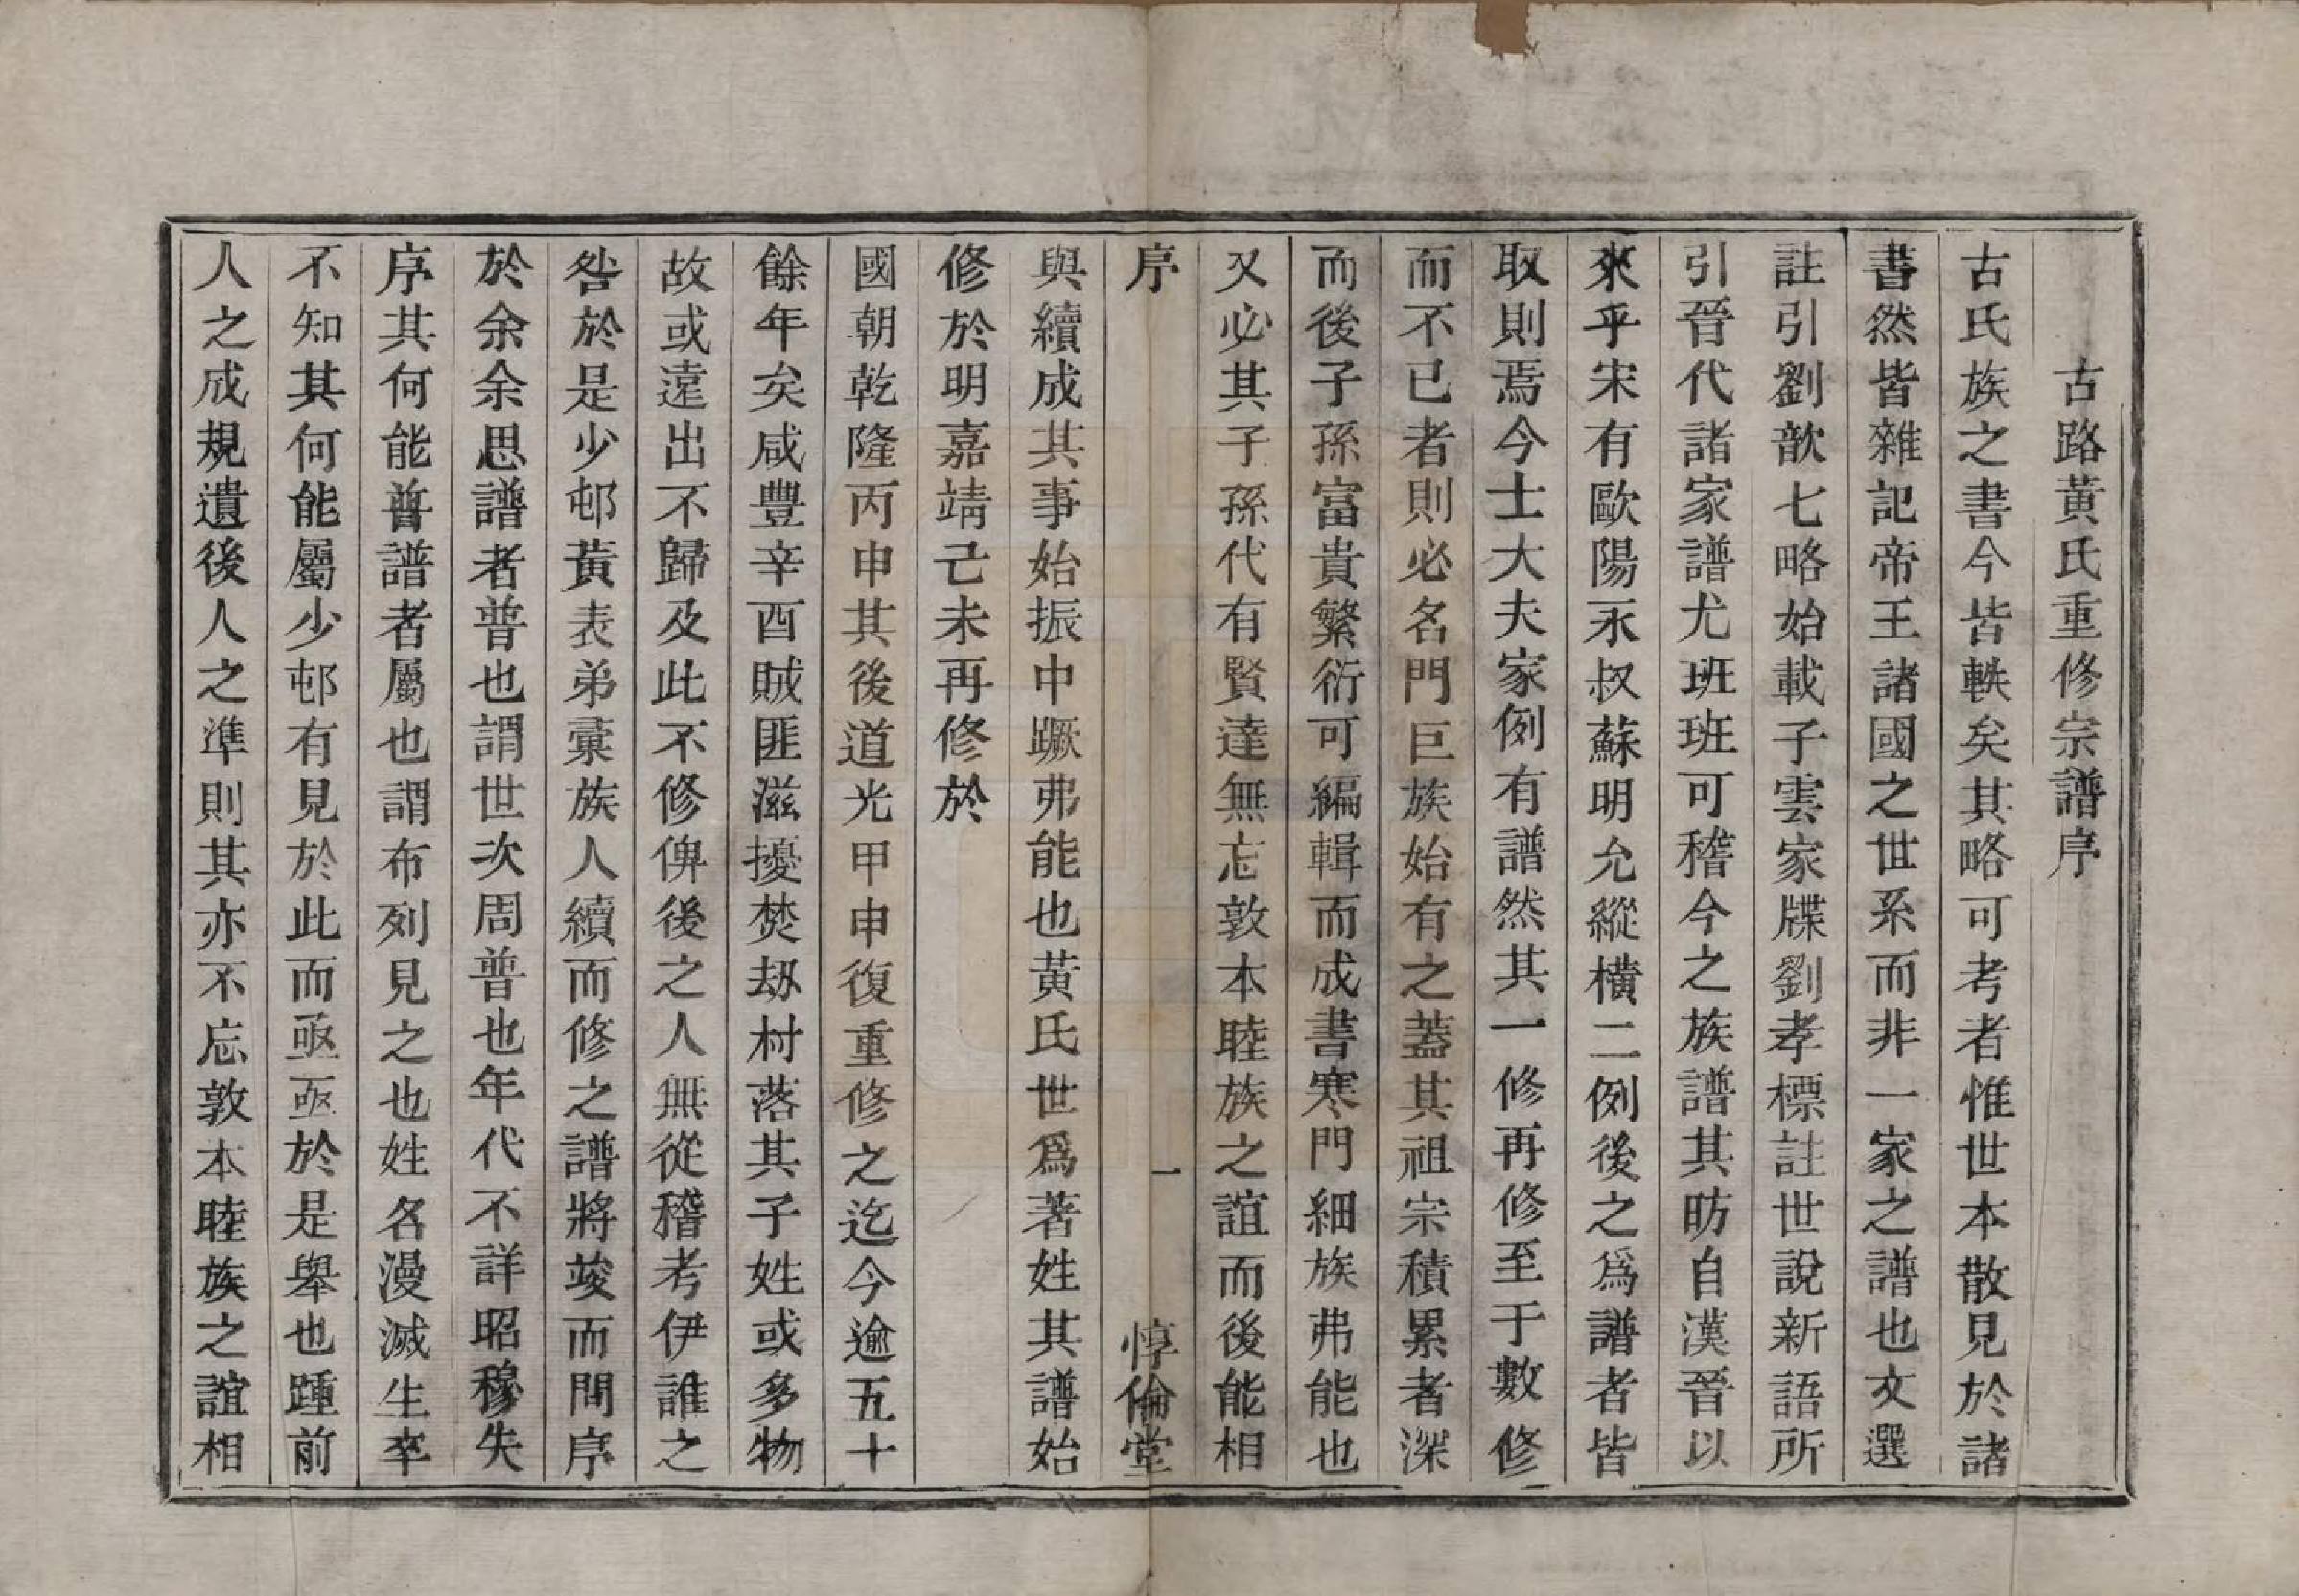 古路黄氏重修宗譜序
古氏族之書今皆軼矣其略可考者惟世本散見於諸
書然皆雜記帝王諸國之世系而非一家之譜也文選
註引劉歆七略始載子雲家牒劉孝標註世說新語所
引晉代諸家譜尤班班可稽今之族譜其昉自漢晉以
來乎宋有歐陽永叔蘇明允縱橫二例後之爲譜者皆
取則焉今士大夫家例有譜然其一修再修至于數修
而不已者則必名門巨族始有之蓋其祖宗積累者深
而後子孫富貴繁衍可編輯而成書寒門細族弗能也
又必其子孫代有賢達無忘敦本睦族之誼而後能相
序 一 惇倫堂
與續成其事始振中蹶弗能也黄氏世爲著姓其譜始
修於明嘉靖己未再修於
國朝乾隆丙申其後道光甲申復重修之迄今逾五十
餘年矣咸豐辛酉賊匪滋擾焚刼村落其子姓或多物
故或遠出不歸及此不修俾後之人無從稽考伊誰之
咎於是少邨黄表弟彙族人續而修之譜將竣而問序
於余余思譜者普也謂世次周普也年代不詳昭穆失
序其何能普譜者屬也謂布列見之也姓名漫滅生卒
不知其何能屬少邨有見於此而亟亟於是舉也踵前
人之成規遺後人之準則其亦不忘敦本睦族之誼相